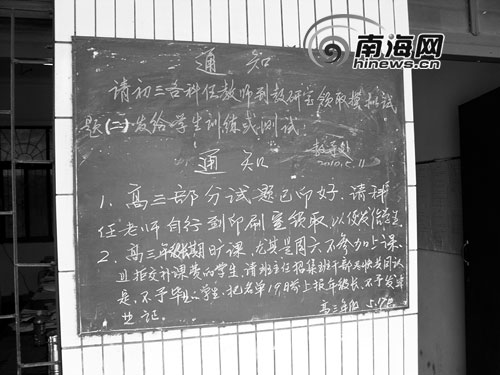 南海网
hinews.cn
通知
请初三各科任教师到教研室领取模拟试
题(二)发给学生训练或测试.
教导处
2010.5.11
通知
1、高三部分试题已印好.请科
任老师自行到印刷室领取.以便发给学生
2、高三年级长期旷课,尤其是周六不参加上课
且拒交补课费的学生.请班主任招集班干部
是,不予毕业学生.把名单19日前上报年级长,不予发毕
业证.
高三年级 5.